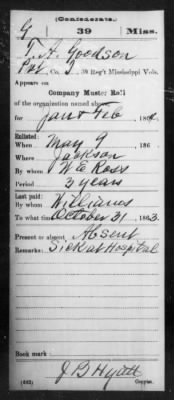 (Confederate.)
G 39 Miss.
T. A. Goodson
Pvt, Co. J, 39 Reg't Mississippi Vols.
Appears on
Company Muster Roll
of the organization named above
for Jan & Feb, 1864.
Enlisted:
When May 9, 186
Where Jackson
By whom W E Ross
Period 3 years
Last paid:
By whom Williams
To what time October 31, 1863.
Present or absent Absent
Remarks: Sick at Hospital
Book mark:
J B Hyatt
(642) Copyist.